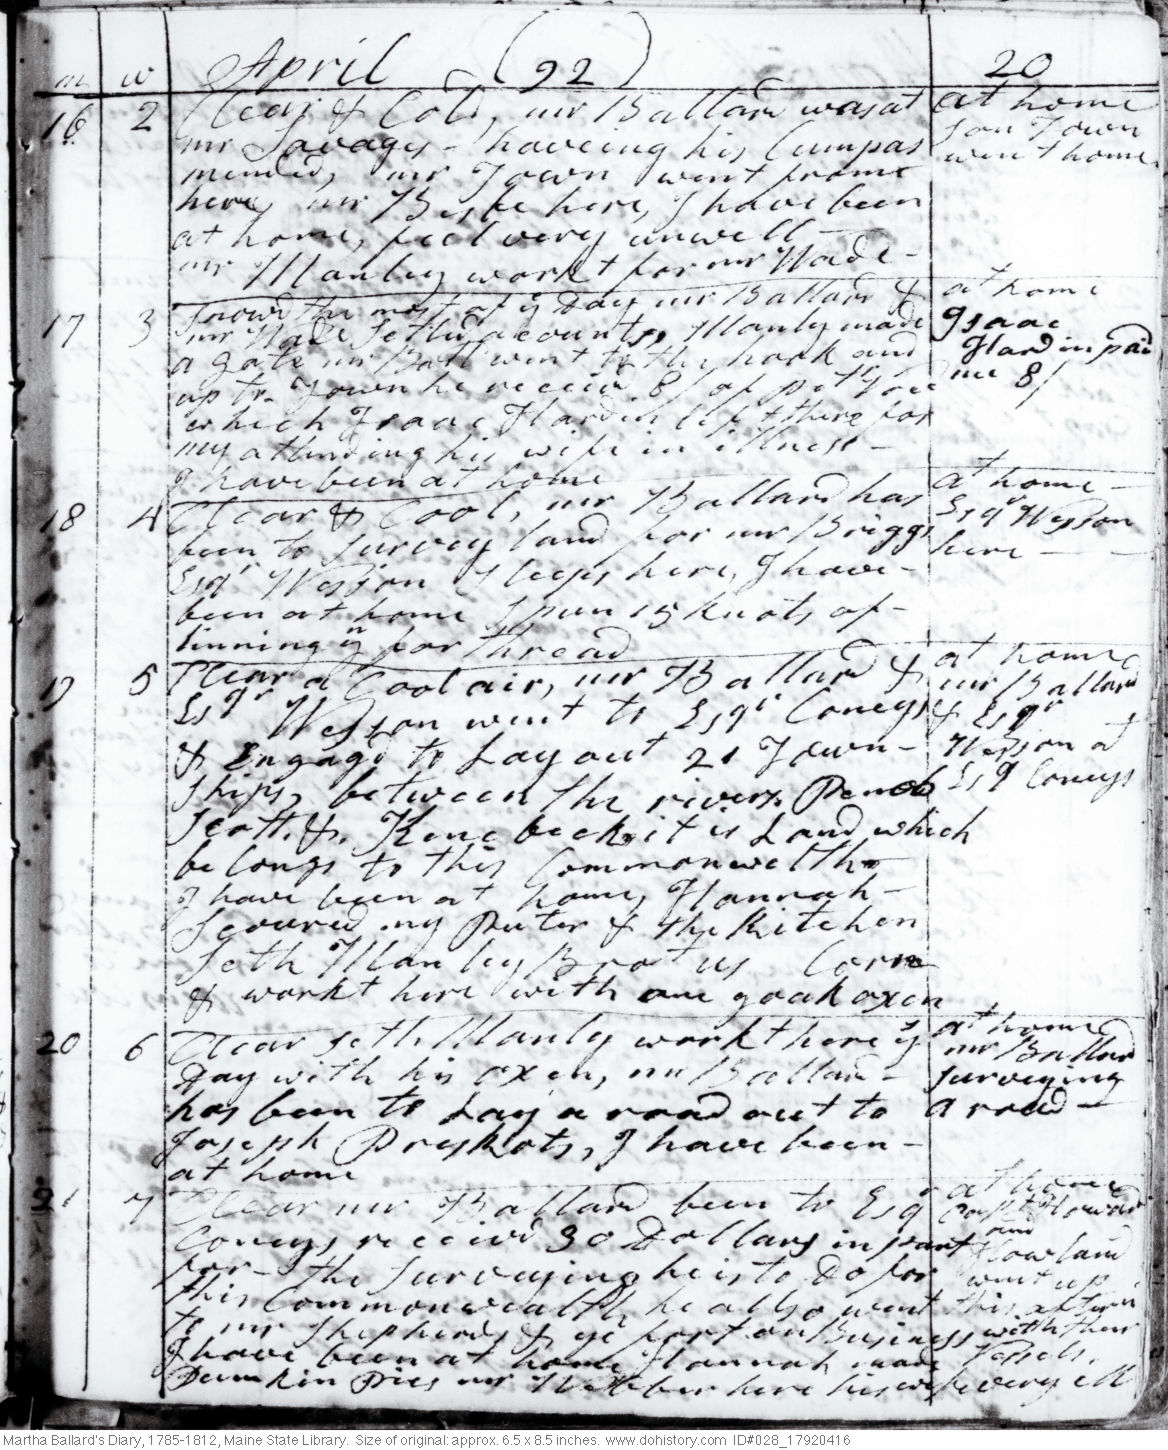 m w April (92) 20
16 2 Clear & Cold, mr Ballard was at
mr Savages - haveing his Cumpas
mended, mr Town went from
here, mr Bisbe here, I have been
at home, feel very unwell -
mr Manley workt for mr Wade -
at home
son Town
went home
17 3 Snowd the most of ÿ Day mr Ballard &
mr Wade Setld accounts, Manly made
a gate mr Ball went to the hook and
up to Town he receivd 8/ of
which Isaac Hardin left there for
my attending his wife in illness -
I have been at home
at home
Isaac
Hardin paid
me 8/
18 4 Clear & Cool, mr Ballard has
been to survey land for mr Briggs
Esqr Wesson sleeps here, I have -
been at home spun 15 knots of -
linning for thread
at home -
Esqr Wesson
here -
19 5 Clear a Cool air, mr Ballard &
Esqr Wesson went to Esqr Coneys
& Engagd to Lay out 21 Town -
ships, between the rivers Penob
Scott & Kenebeck, it is Land which
belongs to this Commonwelth
I have been at home, Hannah -
Scoured my Puter & the Kitchen
Seth Manley Brot us Corn
& workt here with one yoak oxen
at home
mr Ballard
& Esqr
Wesson at
Esqr Coneys
20 6 Clear Seth Manly workt here ÿ
Day with his oxen, mr Ballard -
has been to Lay a road out to
Joseph Preskots, I have been -
at home
at home
mr Ballard
surveying
a road -
21 7 Clear mr Ballard been to Esqr
Coneys, receivd 30 Dollars in part
for - the surveying he is to do for
this Commonwealth, he allso went
to mr Shepherds & ye fort on Business
I have been at home Hannah made
Pumkin Pies mr Webber here his wife very ill
at home
Capt Howard
and
Howland
went up
this aftern
with their
Vessels.
Martha Ballard's Diary, 1785-1812, Maine State Library. Size of original: approx. 6.5 x 8.5 inches. www.dohistory.com ID#028_17920416